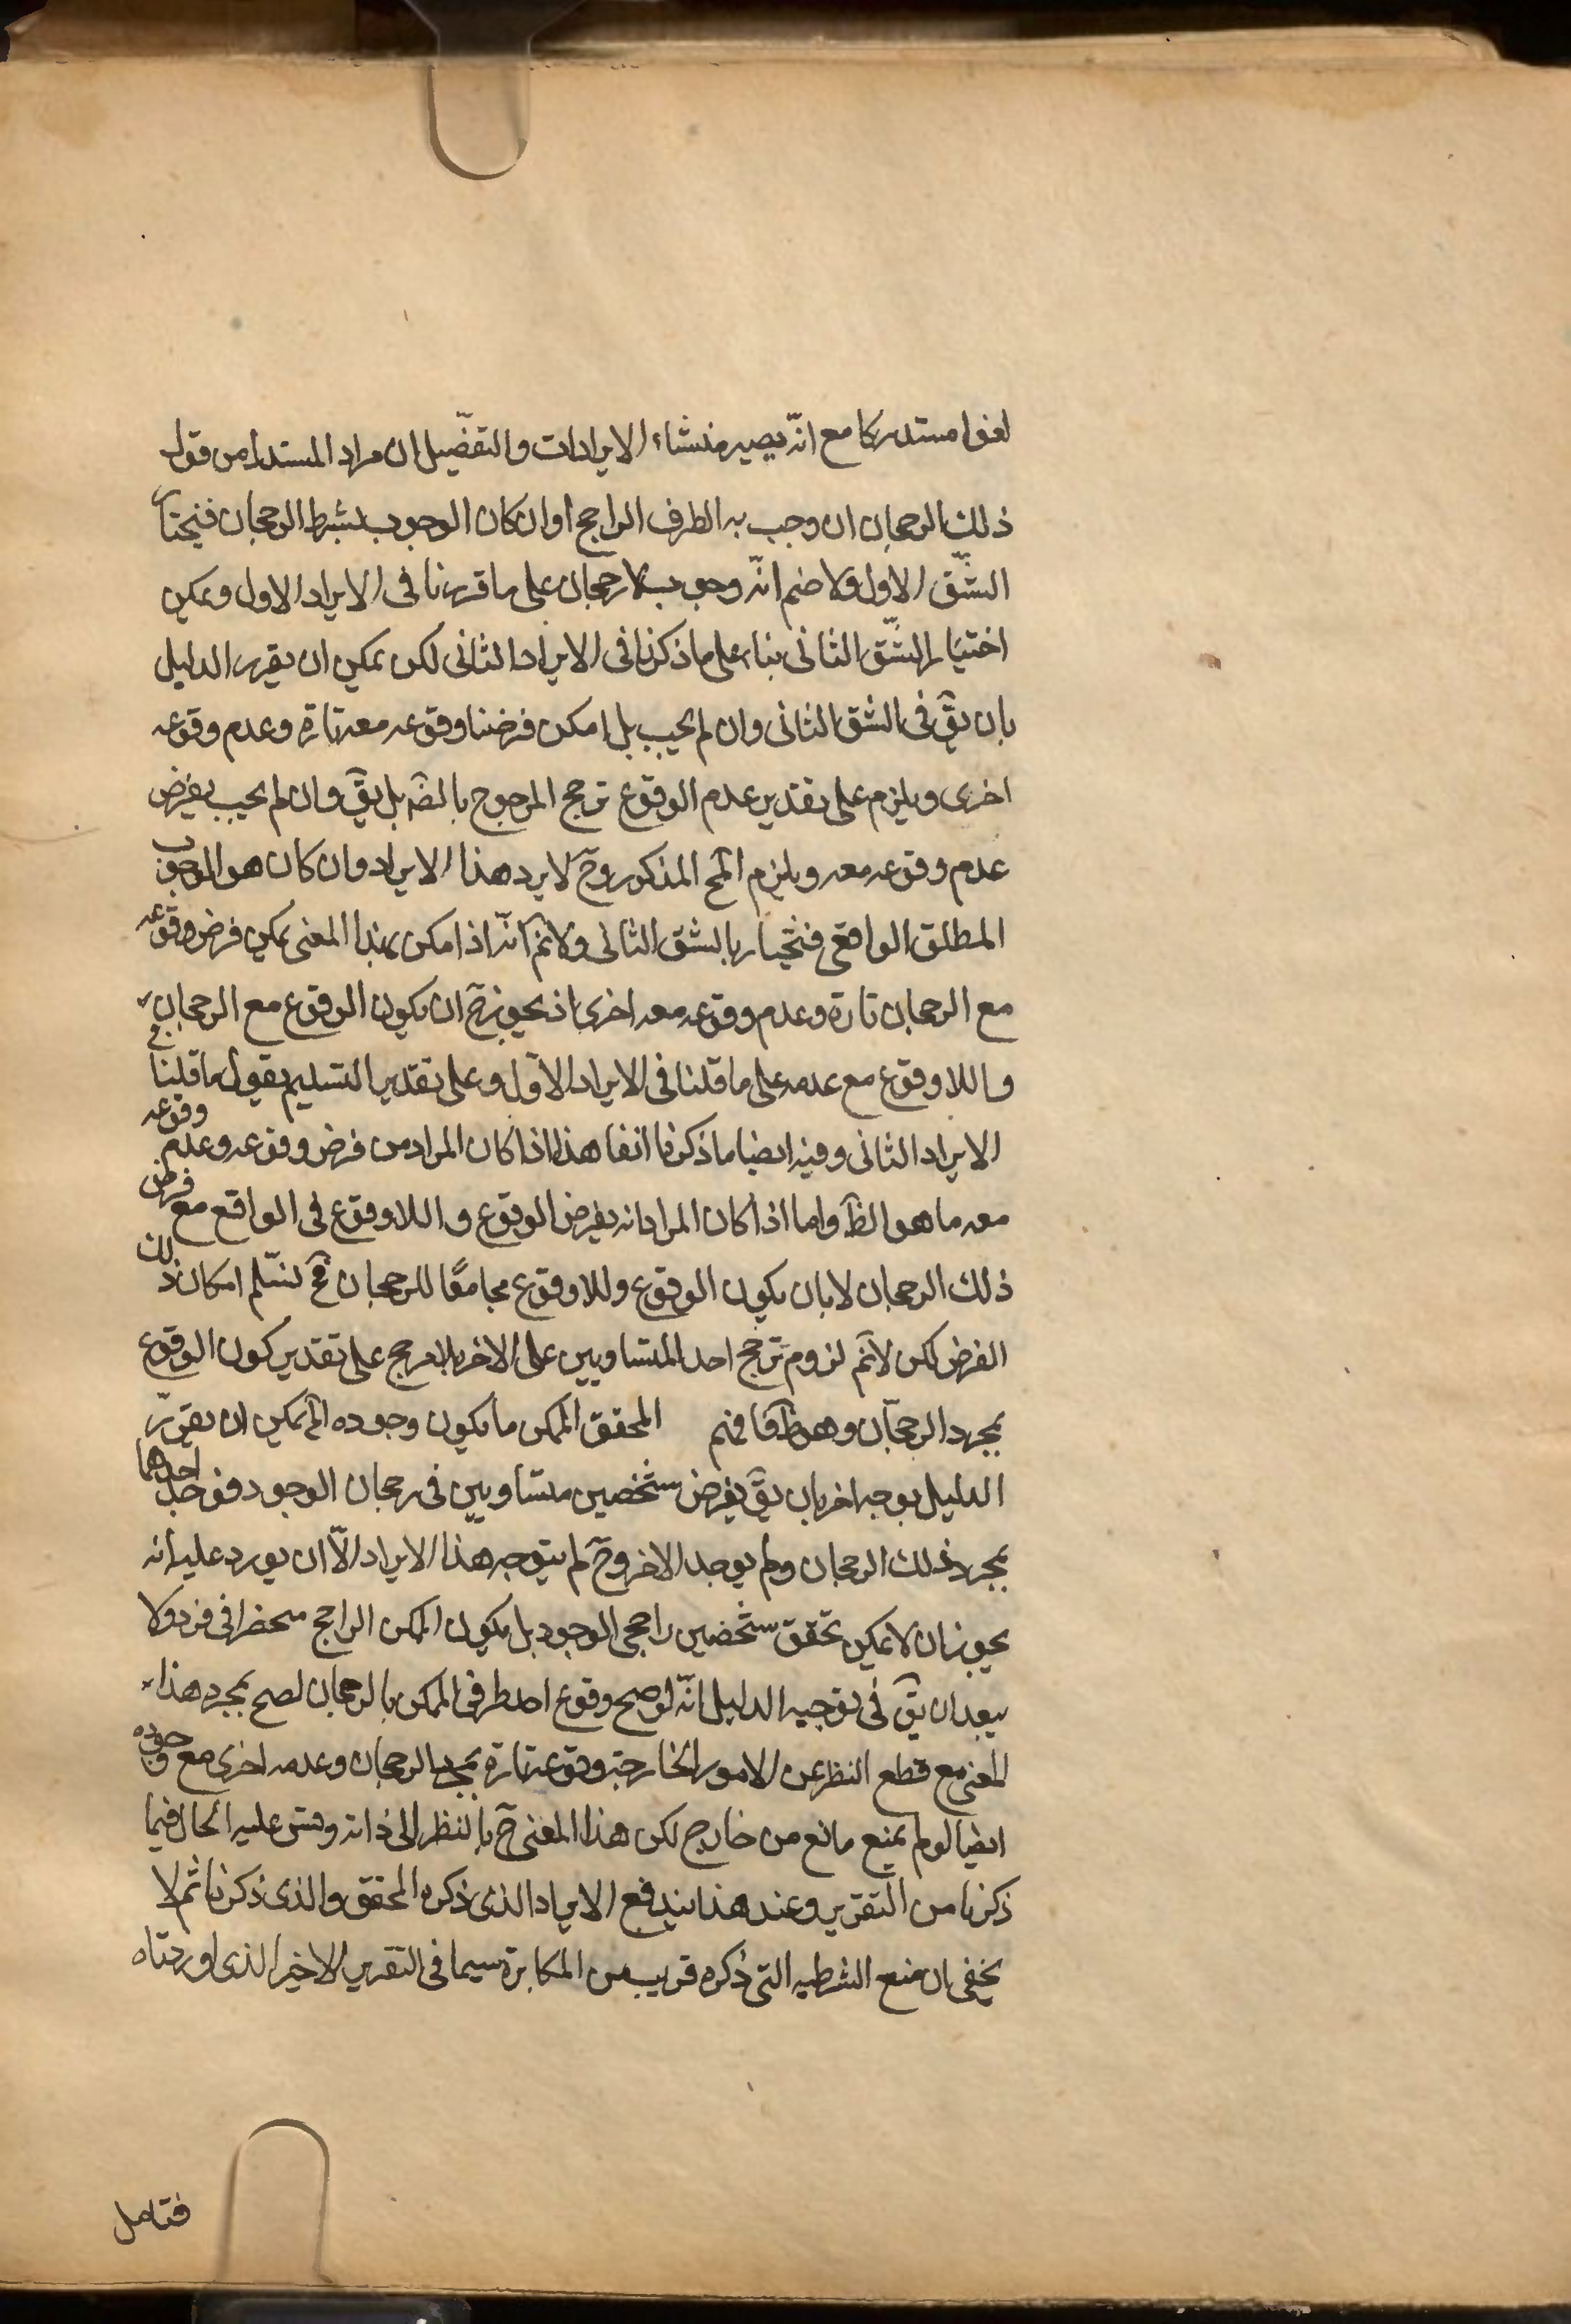 لغوا مستدركا مع انّه يصير منشاء الايرادات والتفصّيل ان مراد المستدل من قوله
ذلك الرحجان ان وجب به الطرف الراجح اوان كان الوجوب بشرط الرحجان فنختار
الشّق الاول ولا ضم انّه وجوب بلا رحجان على ما قررنا فى الايراد الاول ويمكن
اختيار الشّق الثانى بناء على ما ذكرنا فى الايراد الثانى لكن يمكن ان يقرر الدليل
بان يقٓ فى الشق الثانى وان لم يجب بل امكن فرضنا وقوعه معه تارة وعدم وقوعه
اخرى ويلزم على تقدير عدم الوقوع ترجح المرجوح بالضٓه بل يقٓ وان لم يجب يفرض
عدم وقوعه معه ويلزم المٓح المذكور وحٓ لا يرد هذا الايراد وان كان هو الوجوب
المطلق الواقعى فنختار بالشق الثانى ولانمٓ انّه اذا امكن بهذا المعنى يمكن فرض وقوعه
مع الرحجان تارة وعدم وقوعه معه اخرى اذ يجوز حٓ ان يكون الوقوع مع الرحجان
واللاوقوع مع عدمه على ما قلنا فى الايراد الاوّل وعلى تقدير التسليم نقول ما قلنا فى
الايراد الثانى وفيه ايضا ما ذكرنا انفا هذا اذا كان المراد من فرض وقوعه وعدم وقوعه
معه ما هو الظٓ واما اذا كان المراد انه يفرض الوقوع واللاوقوع فى الواقع مع فرض
ذلك الرحجان لا بان يكون الوقوع وللاوقوع مجامعًا للرحجان فحٓ نسّلم امكان ذلك
الفرض لكن لانمٓ لزوم ترجح احد المتساويين على الاخر بلا مرجح على تقدير كون الوقوع
بمجرد الرحجان وهو ظٓ فافهم المحقق الممكن ما يكون وجوده الٓخ يمكن ان يقرّر
الدليل بوجه اخر بان يقٓ يفرض شخصين متساويين فى رحجان الوجود فوجد احدهما
بمجرد ذلك الرحجان ولم يوجد الاخر وحٓ لم يتوجه هذا الايراد الّا ان يورد عليه انه
يجوز ان لا يمكن تحقق شخصين راجحى الوجود بل يكون الممكن الراجح منحصرا فى فرد ولا
يبعد ان يقٓ فى توجيه الدليل انّه لو صح وقوع احد طرفى الممكن بالرحجان لصح بمجرد هذا
المعنى مع قطع النظر عن الامور الخارجة وقوعه تارة بمجرد الرحجان وعدمه اخرى مع وجوده
ايضا لو لم يمنع مانع من خارج لكن هذا المعنى حٓ بالنظر الى ذاته وقس عليه الحال فيما
ذكرنا من التقرير وعند هذا يندفع الايراد الذى ذكره المحقق والذى ذكرنا ثم لا
يخفى ان منع الشرطيه التى ذكره قريب من المكابرة سيما فى التقرير الاخير الذى اوردناه
فتامل